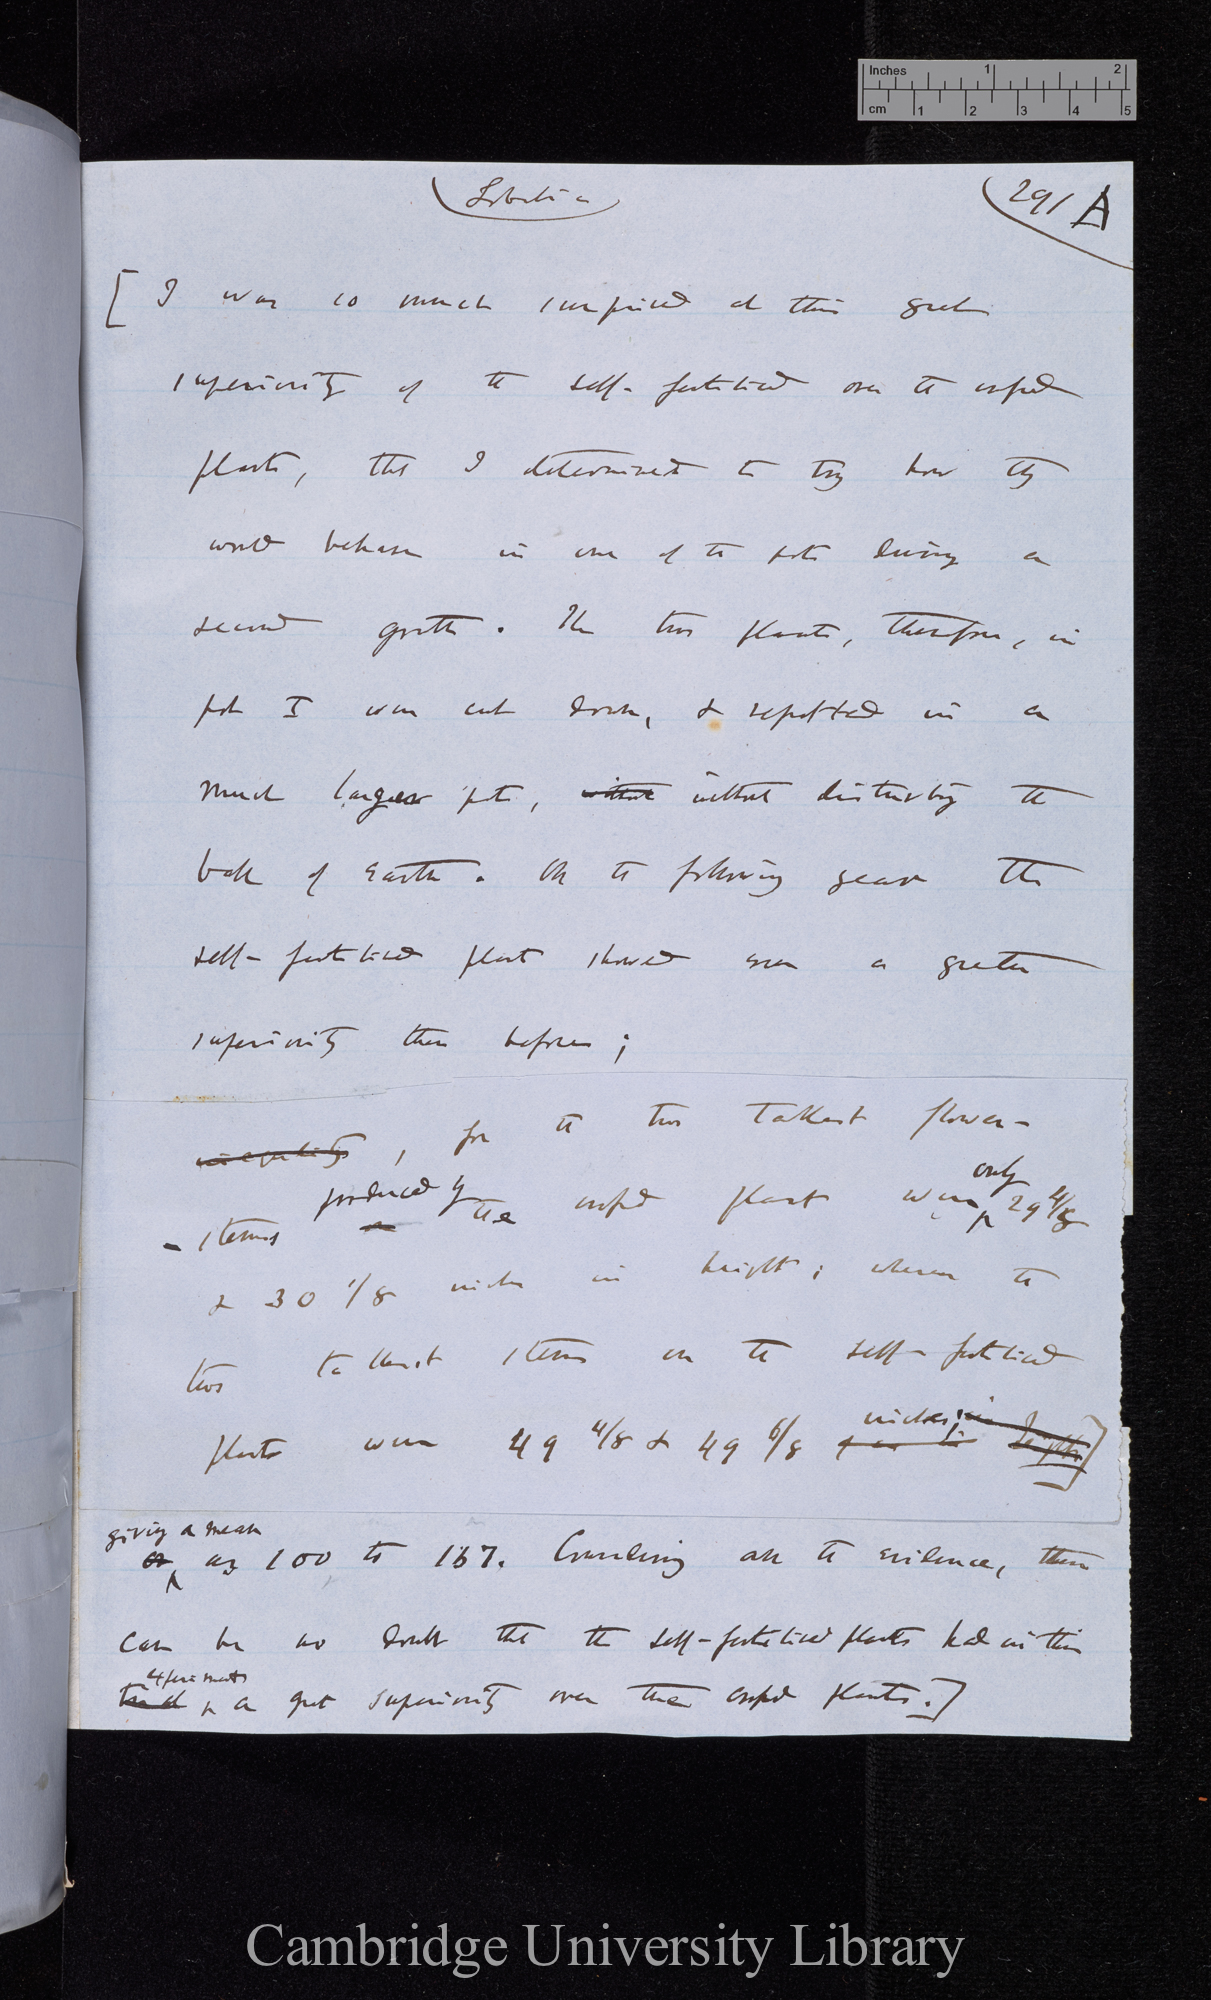 Inches 1 2
cm 1 2 3 4 5
Lobelia
291 A
[ I was so much surprised at this great
superiority of the self-fertilised over the crossed
plants, that I determined to try how they
would behave in one of the pots during a
second growth. The two plants, therefore, in
pot I were cut down, & repotted in a
much larger pot, without without disturbing the
ball of earth. On the following year the
self-fertilised plant showed even a greater
superiority than before;
inequality, for the two tallest flower-
produced by only
-stems the crossed plant were 29 4/8
& 30 1/8 inches in height; whereas the
two tallest stems on the self-fertilised
inches; in length]
plants were 49 4/8 & 49 6/8
giving a mean
or as 100 to 167. Considering all the evidence, there
can be no doubt that the self-fertilised plants had in this
experiments
a great superiority over the crossed plants.]
Cambridge University Library